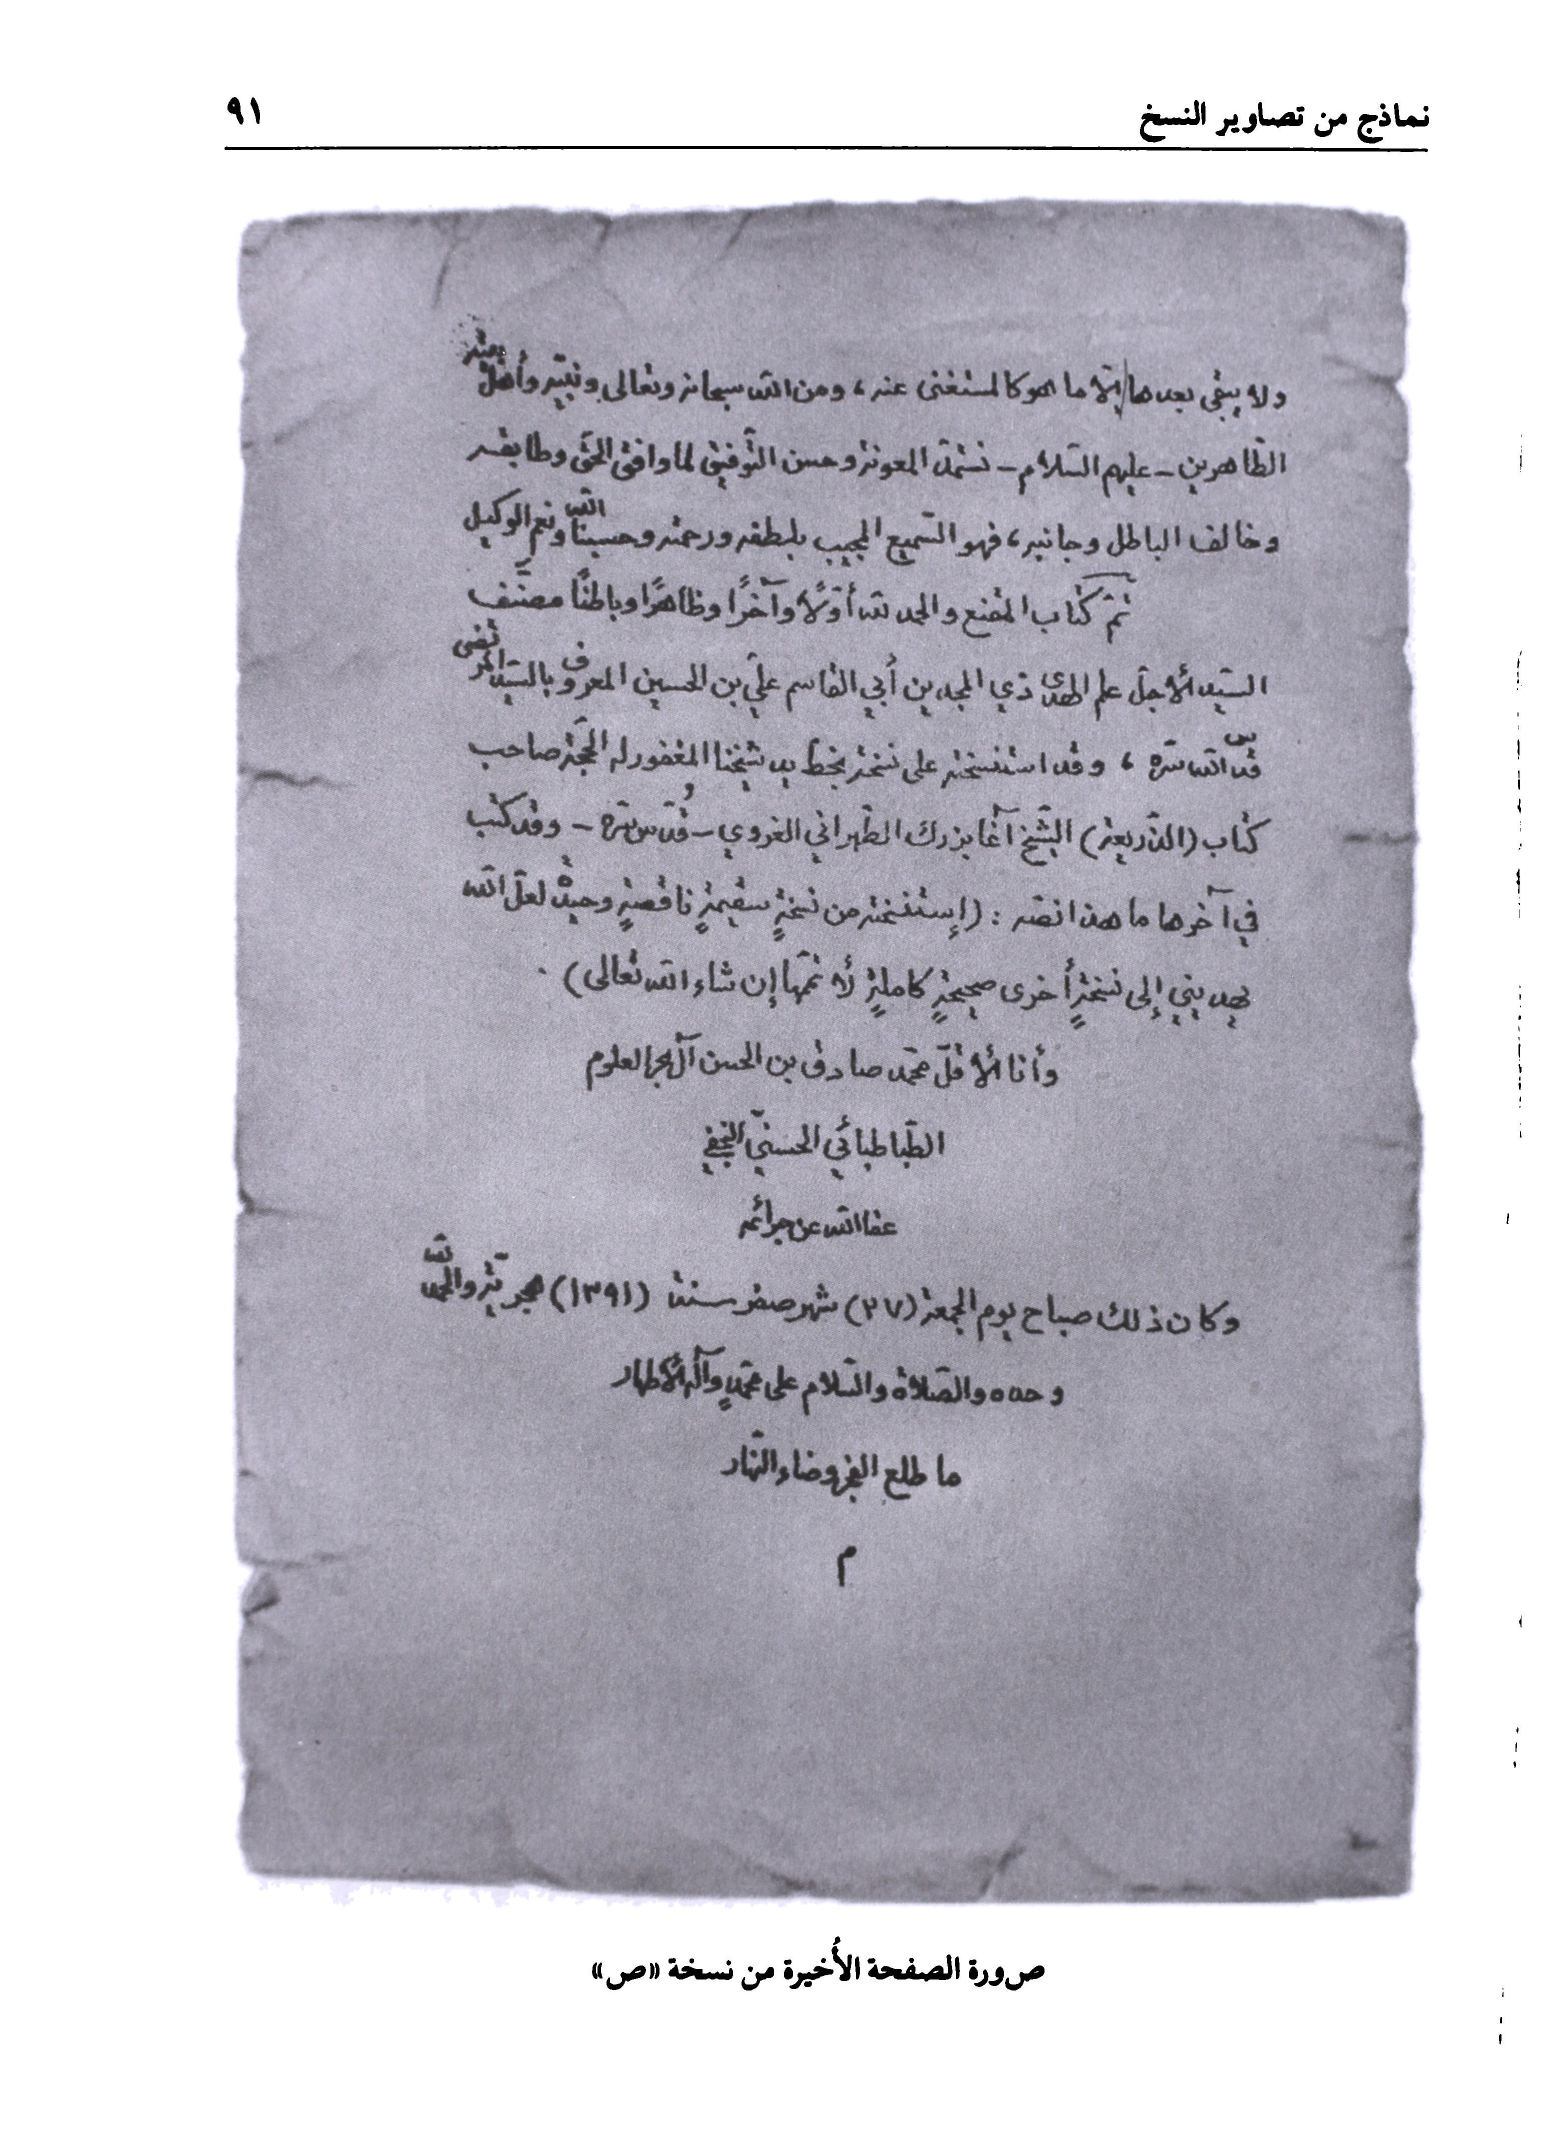 نماذج من تصاوير النسخ ٩١
ولا يبقى بعدها إلّا ما هو كالمستغنى عنه، ومن الله سبحانه وتعالى ونبيّه وأهل بيته
الطّاهرين - عليهم السّلام - نستمدّ المعونة وحسن التّوفيق لما وافق الحقّ وطابقه
وخالف الباطل وجانبه، فهو السّميع المجيب بلطفه ورحمته وحسبنا الله ونعم الوكيل
تمّ كتاب المقنع والحمد لله أوّلًا وآخرًا وظاهرًا وباطنًا مصنّف
السيّد الأجلّ علم الهدى ذي المجدين أبي القاسم عليّ بن الحسين المعروف بالسيّد المرتضى
قدّس الله سرّه، وقد استنسخته على نسخة بخطّ يد شيخنا المغفور له الحجّة صاحب
كتاب (الذّريعة) الشّيخ آغا بزرك الطّهراني الغروي - قُدّس سرّه - وقد كتب
في آخرها ما هذا نصّه: (إستنسخته من نسخةٍ سقيمةٍ ناقصةٍ وحيدة لعلّ الله
يهديني إلى نسخةٍ أخرى صحيحةٍ كاملةٍ لأتمّها إن شاء الله تعالى).
وأنا الأقلّ محمّد صادق بن الحسن آل بحر العلوم
الطّباطبائي الحسنيّ النّجفي
عفا الله عن جرائمه
وكان ذلك صباح يوم الجمعة (٢٧) شهر صفر سنة (١٣٩١) هجريّة والحمد لله
وحده والصّلاة والسّلام على محمّدٍ وآله الأطهار
ما طلع الفجر وضاء النّهار
م
صورة الصفحة الأُخيرة من نسخة «ص»